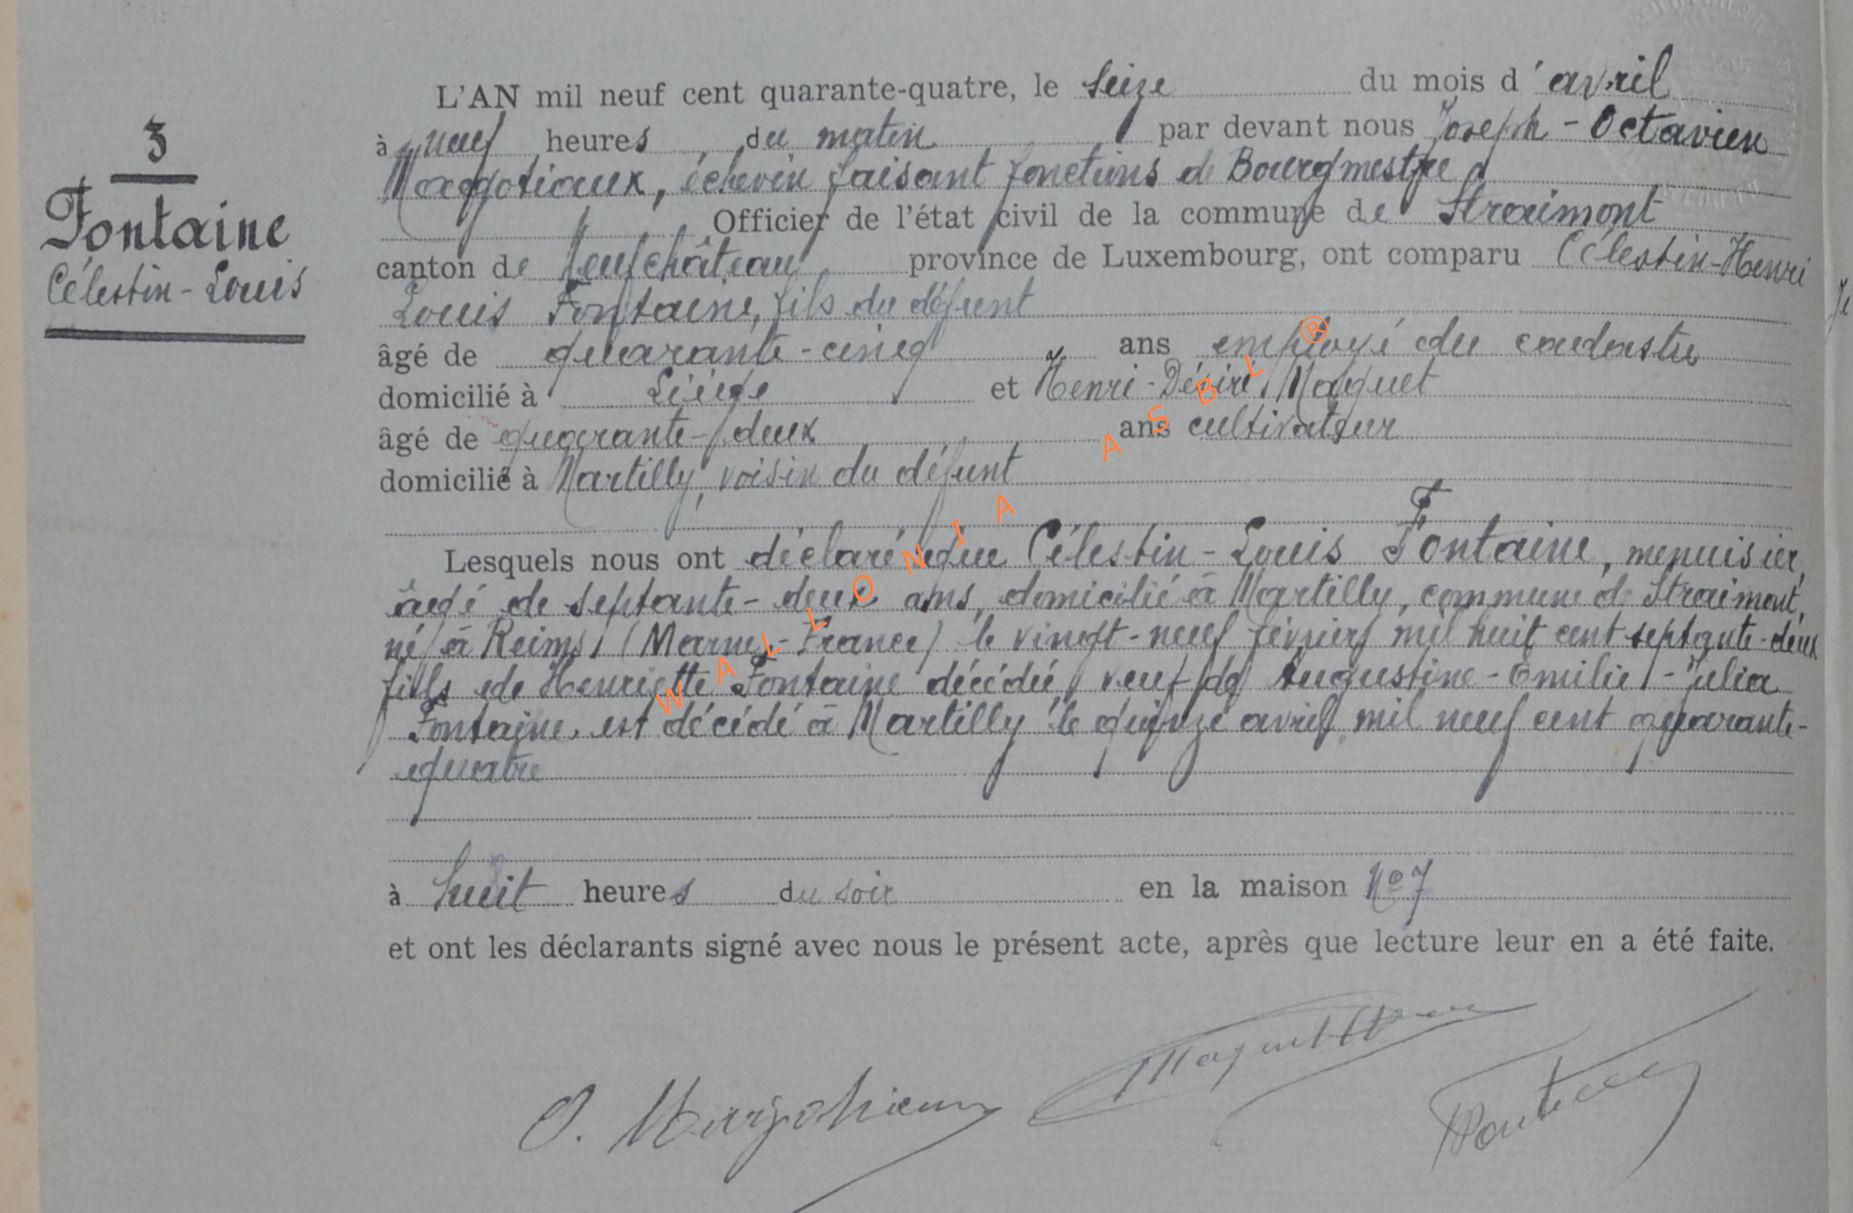 3
Fontaine
Célestin-Louis
L'AN mil neuf cent quarante-quatre, le seize du mois d'avril
à neuf heures du matin par devant nous Joseph-Octavien
Margotiaux, échevin faisant fonctions de Bourgmestre
Officier de l'état civil de la commune de Straimont
canton de Neufchâteau province de Luxembourg, ont comparu Célestin-Henri
Louis Fontaine, fils du défunt
âgé de quarante-cinq ans employé du cadastre
domicilié à Liège et Henri-Désiré Maquet
âgé de quarante-deux ans cultivateur
domicilié à Martilly, voisin du défunt
Lesquels nous ont déclaré que Célestin-Louis Fontaine, menuisier,
âgé de septante-deux ans, domicilié à Martilly, commune de Straimont,
né à Reims (Marne-France) le vingt-neuf février mil huit cent septante-deux
fils de Henriette Fontaine décédée, veuf de Augustine-Emilie-Julia
Fontaine, est décédé à Martilly le quinze avril mil neuf cent quarante-
quatre
à huit heures du soir en la maison No 7
et ont les déclarants signé avec nous le présent acte, après que lecture leur en a été faite.
O. Margotiaux
Maquet H
Fontaine
WALLONIA ASBL ®